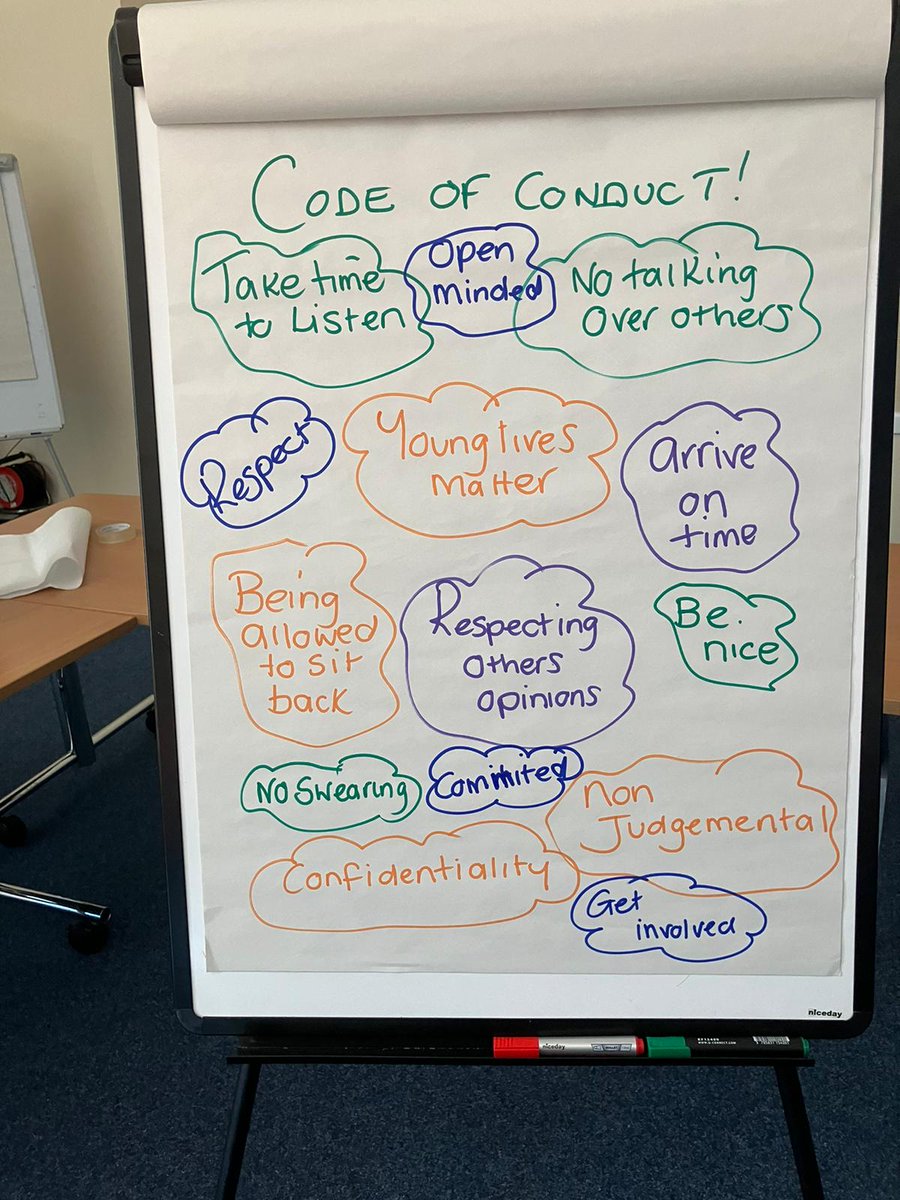 CODE OF CONDUCT!
Take time
to Listen
Open
minded
No talking
Over others
Respect
Young lives
matter
arrive
on
time
Being
allowed
to sit
back
Respecting
others
opinions
Be.
nice
No Swearing
Committed
non
Judgemental
Confidentiality
Get
involved
niceday
niceday